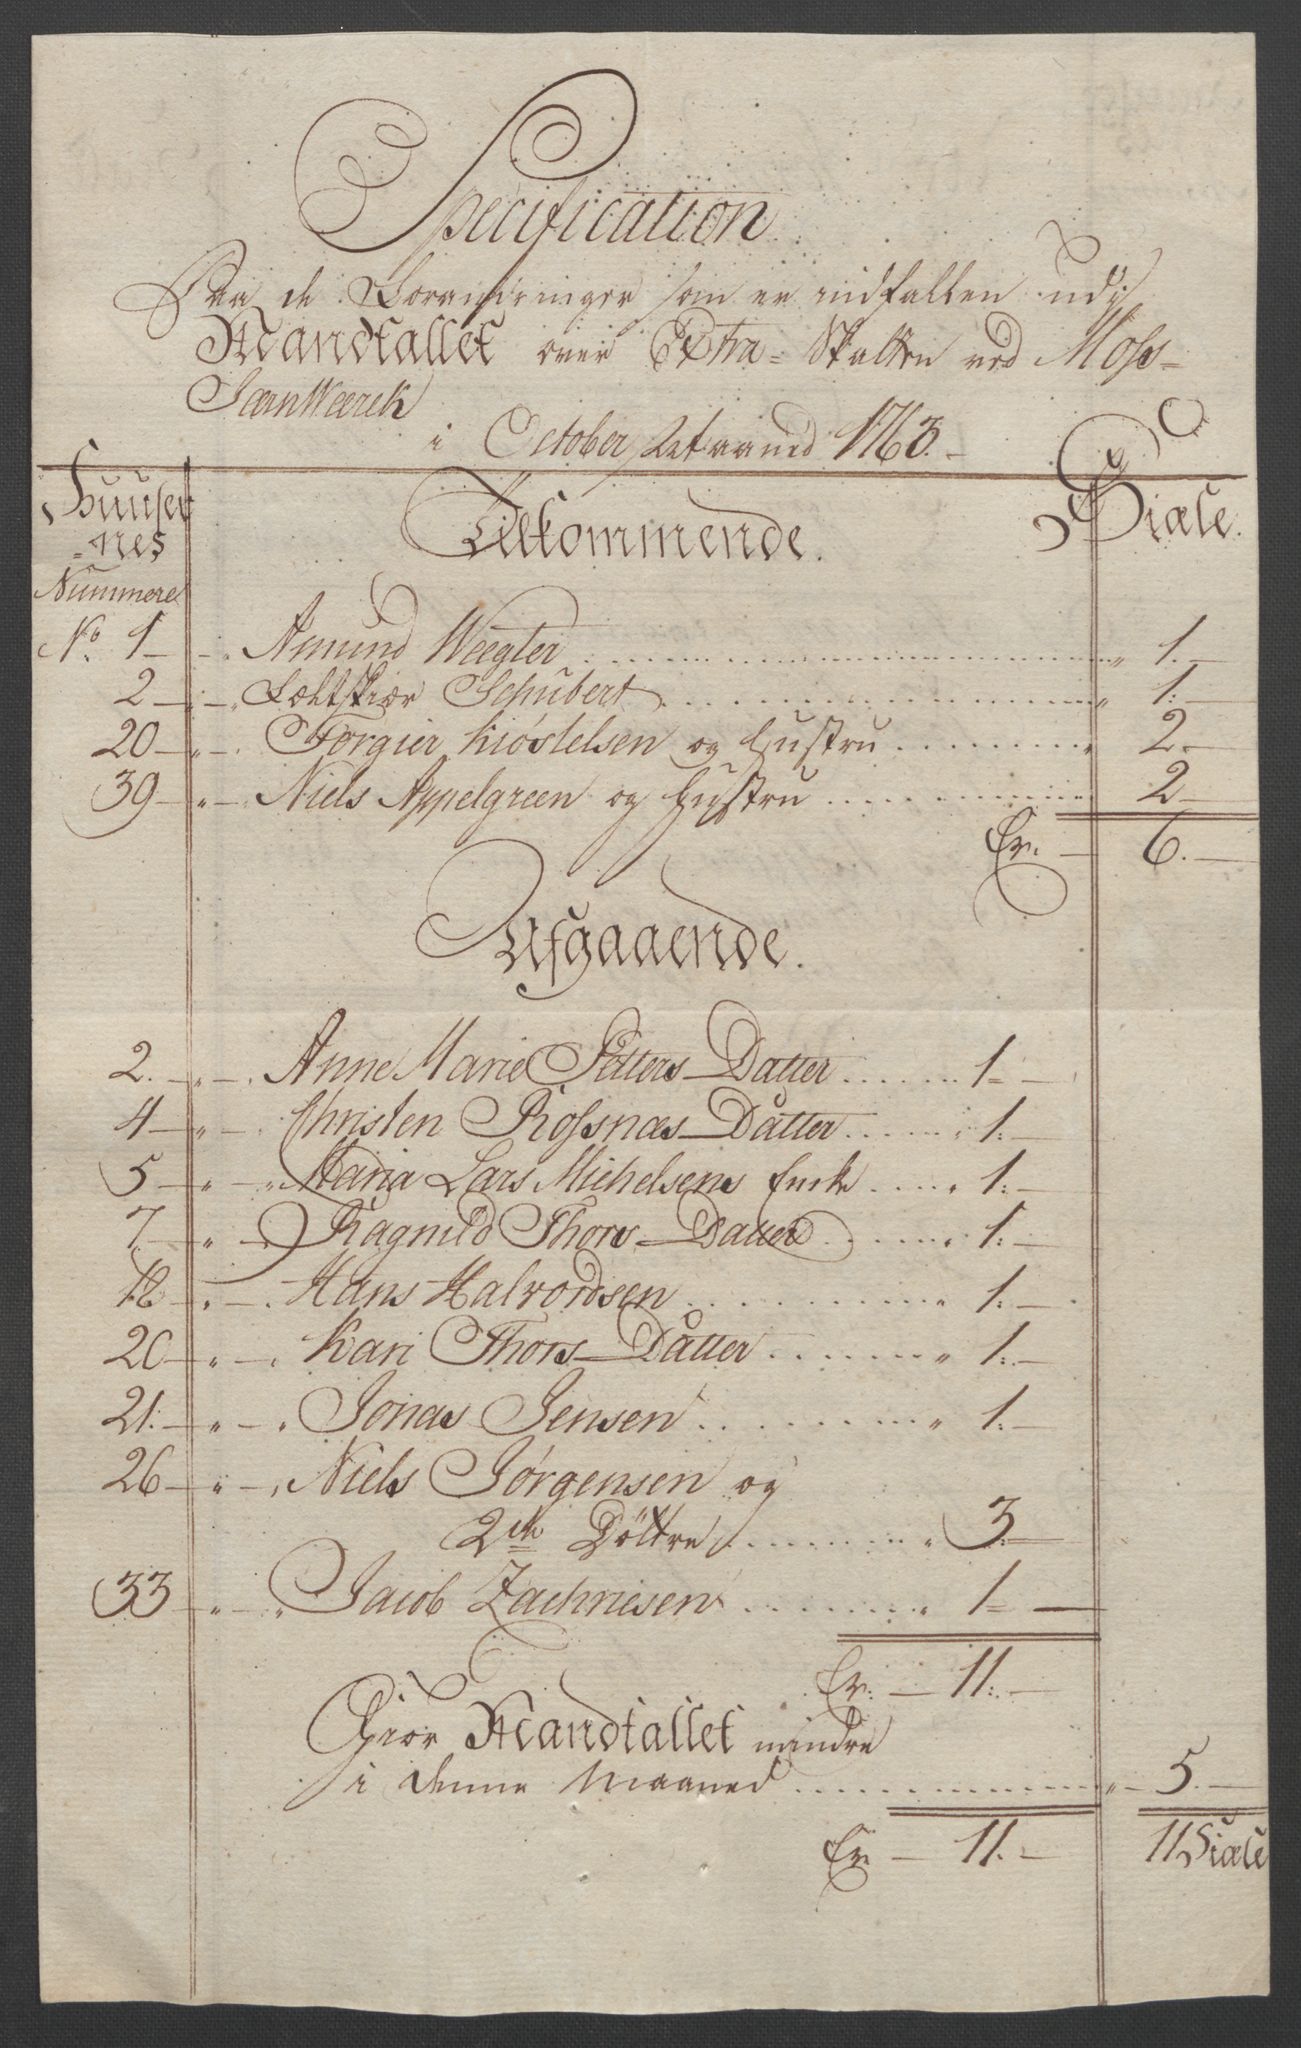 Specification
Paa de Forandringer som er indfalden udj
Mandtallet over Extra-Skatten ved Moss-
JærnWærck
i October Maaned 1763.
Huuser
=nes
Nummere
Tilkommende.
Siæle.
No. 1 Amund Wægter 1.
2 Feldtskiær Schubert 1.
20 Torgier Kiøstelsen og Hustru 2.
39 Niels Appelgreen og Hustru 2
Er. 6.
Afgaaende.
2. Anne Marie Petters Datter 1
4 Christen Rossnæs Datter 1.
5 Maria Lars Michelsens Encke 1.
7 Ragnild Thors Datter 1.
18 Hans Halvordsen 1.
20 Kari Thors Datter 1.
21. Jonas Jensen 1.
26 Niels Jørgensen og
2de Døttre 3.
33 Jacob Zachriesen 1
Er. 11.
Giør Mandtallet mindre
i denne Maaned 5.
Er 11. 11 Siæle